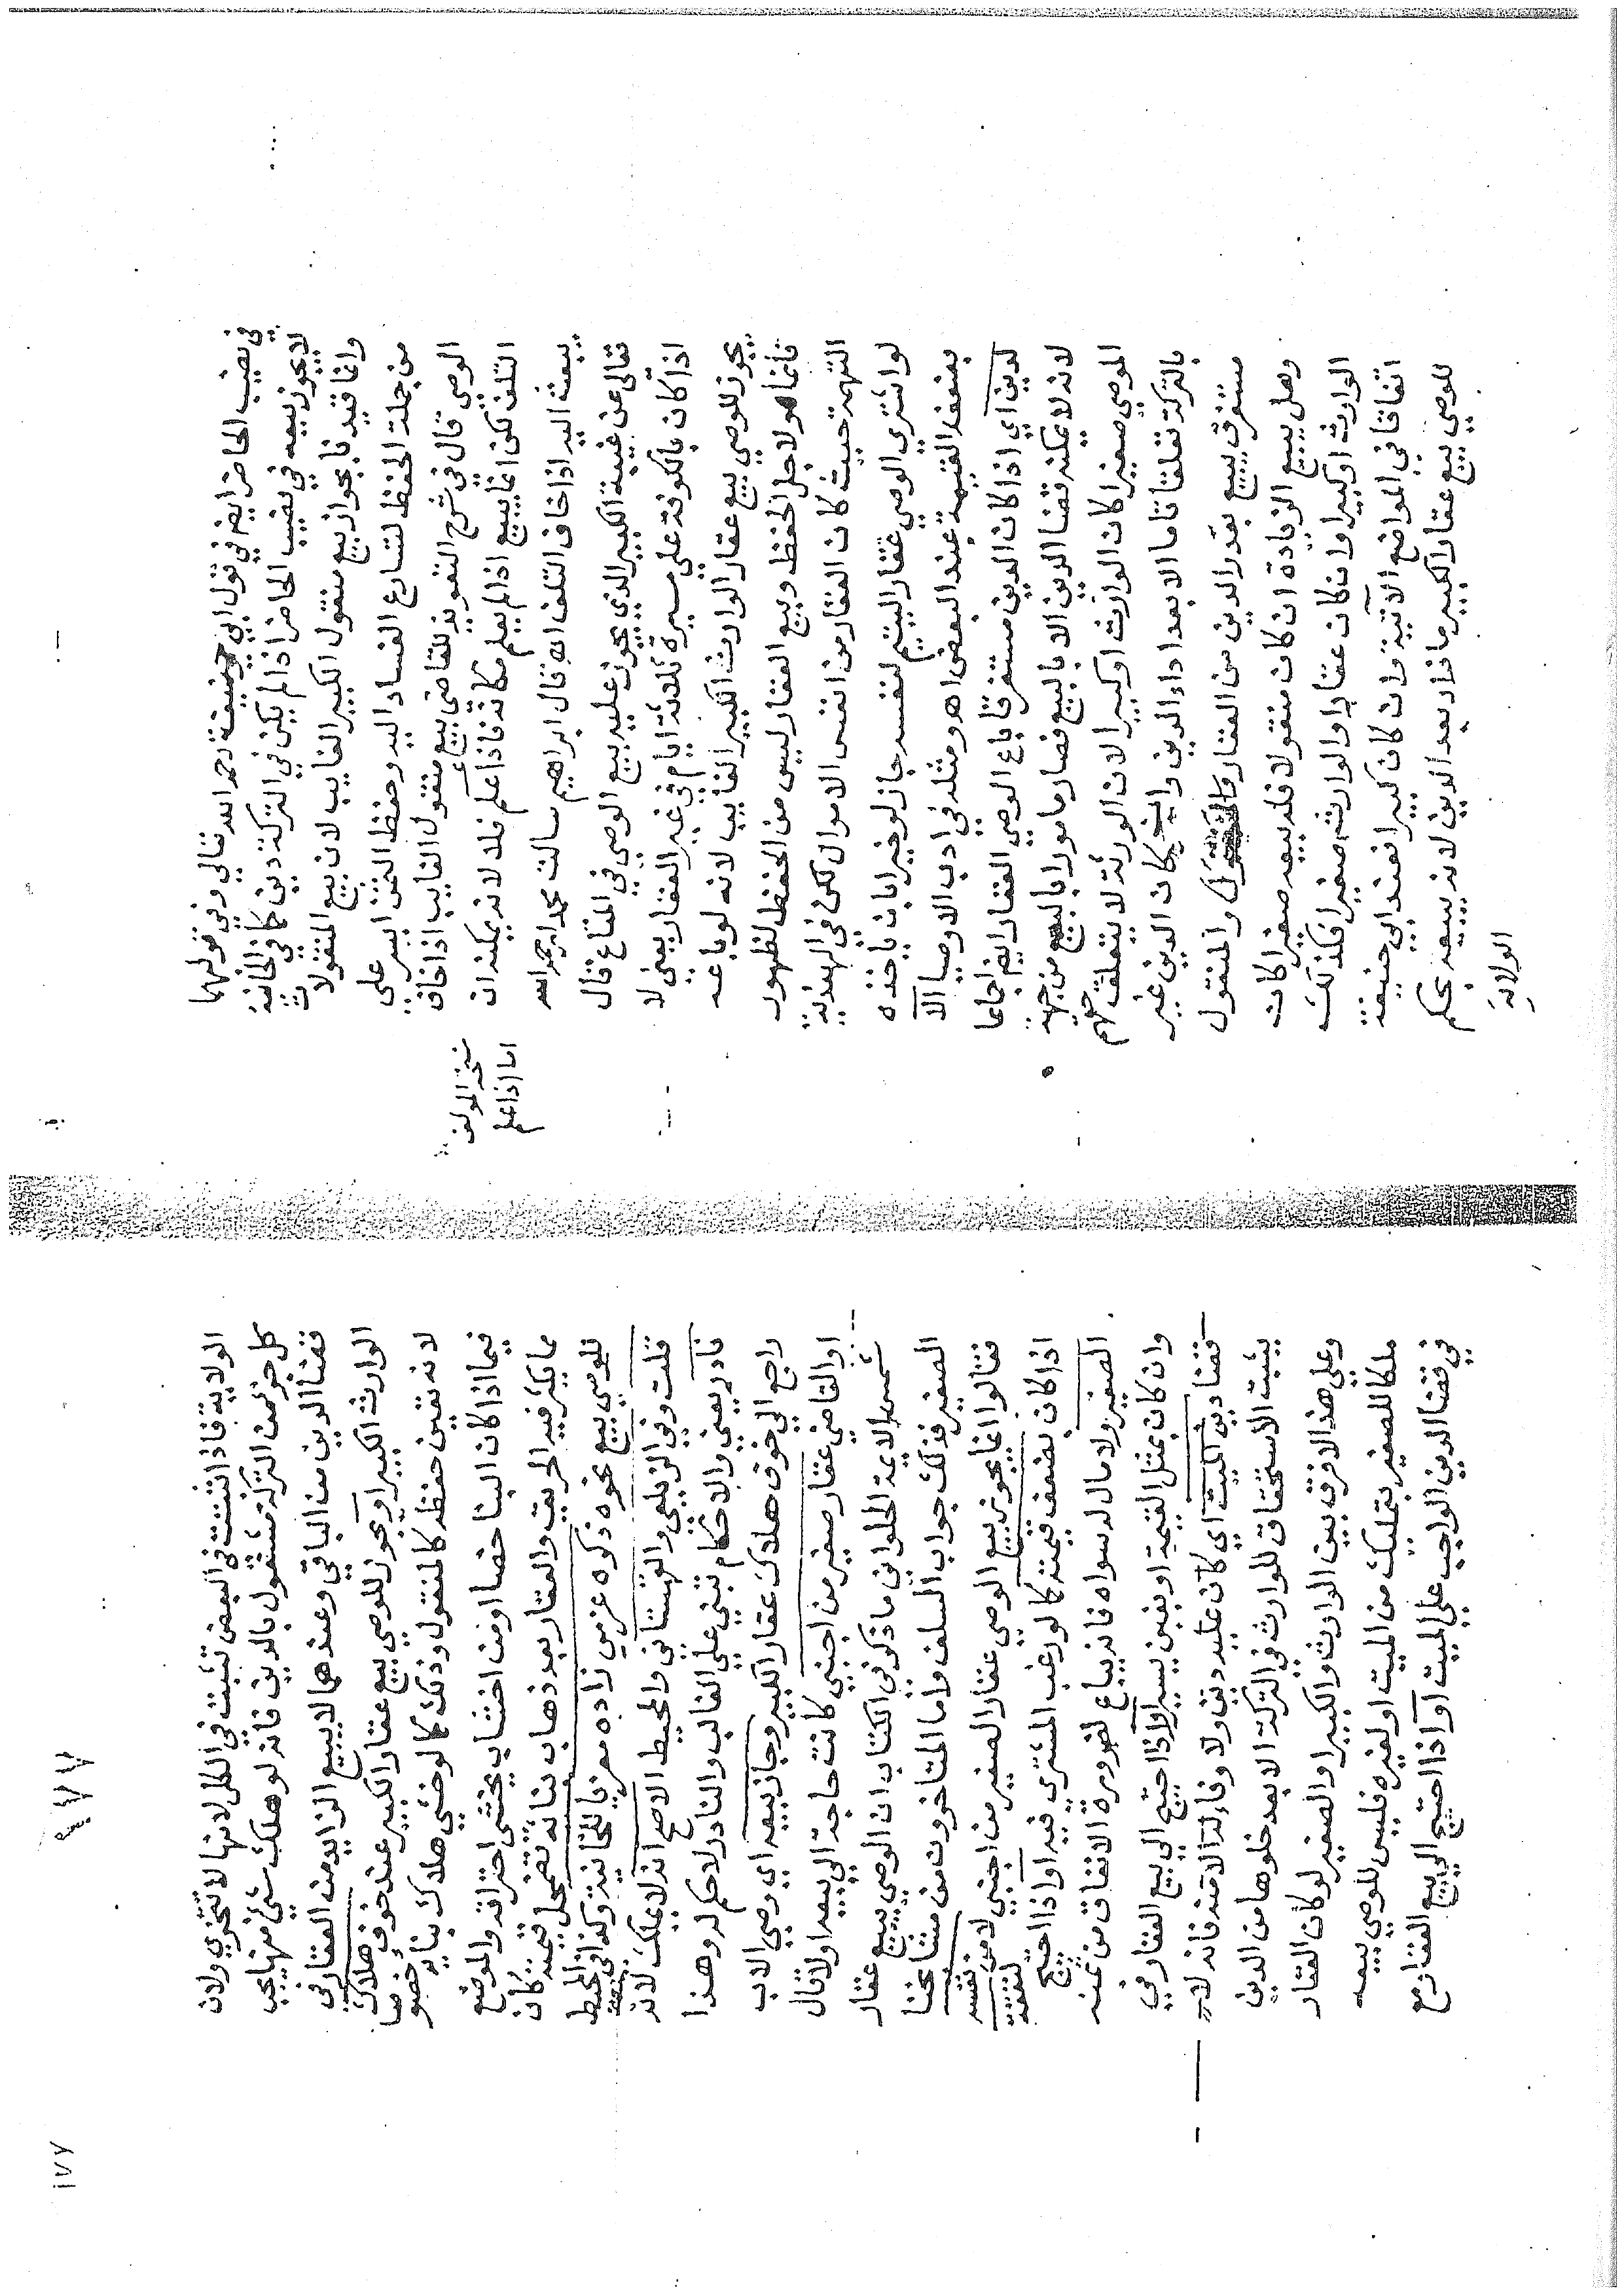 في نصيب الحاضر ايضا في قول ابي حنيفة رحمه الله تعالى وفي قولهما
لا يجوز بيعه في نصيب الحاضر اذا لم يكن في التركة دين كما في الخانية
وانما قيد نا بجواز بيع منقول الكبير الغايب لان بيع المنقولات
من جملة الحفظ لتسارع الفساد اليه وحفظ الثمن ايسر على
الوصي قال في شرح التنوير للقاضي بيع منقول الغايب اذا خاف
التلف لكن انما يبيع اذا لم يعلم مكانه فاذا علم فلا لانه يمكنه ان
يبعثه اليه اذا خاف التلف اه قال ابراهيم سالت محمدا رحمه الله
تعالى عن غيبة الكبير الذي يجوز عليه بيع الوصي في المتاع قال
اذا كان بالكوفة على مسيرة ثلاثة ايام في غير العقار يعني لا
يجوز للوصي بيع عقار الوارث الكبير الغايب لانه لو باعه
فانما هو لاجل الحفظ وبيع العقار ليس من الحفظ لظهور
التهمة حيث كان العقار من انفس الاموال لكن في الهندية
لو اشترى الوصي عقار اليتيم لنفسه جاز لو خيرا بان ياخذه
بضعف القيمة عند البعض اه ومثله في ادب الاوصيا الا
لدين اي اذا كان الدين مستغرقا باع الوصي العقار ايضا اجماعا
لانه لا يمكنه قضا الدين الا بالبيع فصار مامورا بالبيع من جهة
الموصي صغيرا كان الوارث او كبيرا لان الورثة لا يتعلق حقهم
بالتركة تعلقا تاما الا بعد اداء الدين وان كان الدين غير
مستغرق يبيع بقدر الدين من العقار والمنقول
وهل يبيع الزيادة ان كان منقولا فله بيعه صغيرا كان
الوارث او كبيرا وان كان عقارا والوارث صغيرا فكذلك
اتفاقا في المواضع الآتية وان كان كبيرا فعند ابي حنيفة
للوصي بيع عقار الكبير ما زاد بعد الدين لانه يبيعه بحكم
الولاية
نسخة المولف
اما اذا علم
٩٧٧
١٧٧
الولاية فاذا اثبتت في البعض تثبت في الكل لانها لا تتجزي ولان
كل جزء من التركة مشغول بالدين فانه لو هلك شيء منها يجب
قضا الدين من الباقي وعندهما لا يبيع الزايد من العقار في
الوارث الكبير او يجوز للوصي بيع عقار الكبير عند خوف هلاك
لانه تعين حفظه كالمنقول وذلك كما لو خشي هلاك بنايه خصوصا
فيما اذا كان البنا خصا او من اخشاب يخشى احتراقه والموضع
مما يكثر فيه الحريق والعقار بعد ذهاب بنائه تضمحل قيمته كان
للوصي بيع نحوه ذكره عزمي زاده معزيا للخانية وكذا في المحيط
قلت وفي الزيلعي والقهستاني والمحيط الاصح انه لا يملك لانه
نادر يعني والاحكام تبتني على الغالب والنادر لا حكم له وهذا
راجع الى خوف هلاك عقار الكبير وجاز بيعه اي وصي الاب
او القاضي عقار صغير من اجنبي كانت حاجة الى بيعه او لا قال
شمس الايمة الحلواني ما ذكر في الكتاب ان الوصي يبيع عقار
الصغير فذلك جواب السلف واما المتاخرون من مشايخنا
فقالوا انما يجوز بيع الوصي عقار الصغير من اجنبي لا من نفسه
اذا كان بضعف قيمته كما لو رغب المشتري فيه او اذا احتيج
الصغير ولا مال له سواه فانه يباع لضرورة الانفاق من ثمنه
وان كان بمثل القيمة او بغبن يسير او اذا احتيج الى بيع العقار في
قضا دين الميت اي كان عليه دين ولا وفاء له الا منه فانه لا
يثبت الاستحقاق للوارث في التركة الا بعد خلوها من الدين
وعلى هذا لا فرق بين الوارث الكبير او الصغير لو كان العقار
ملكا للصغير بتمليك من الميت او لغيره فليس للوصي بيعه
في قضا الدين الواجب على الميت او اذا احتيج الى بيع العقار مع